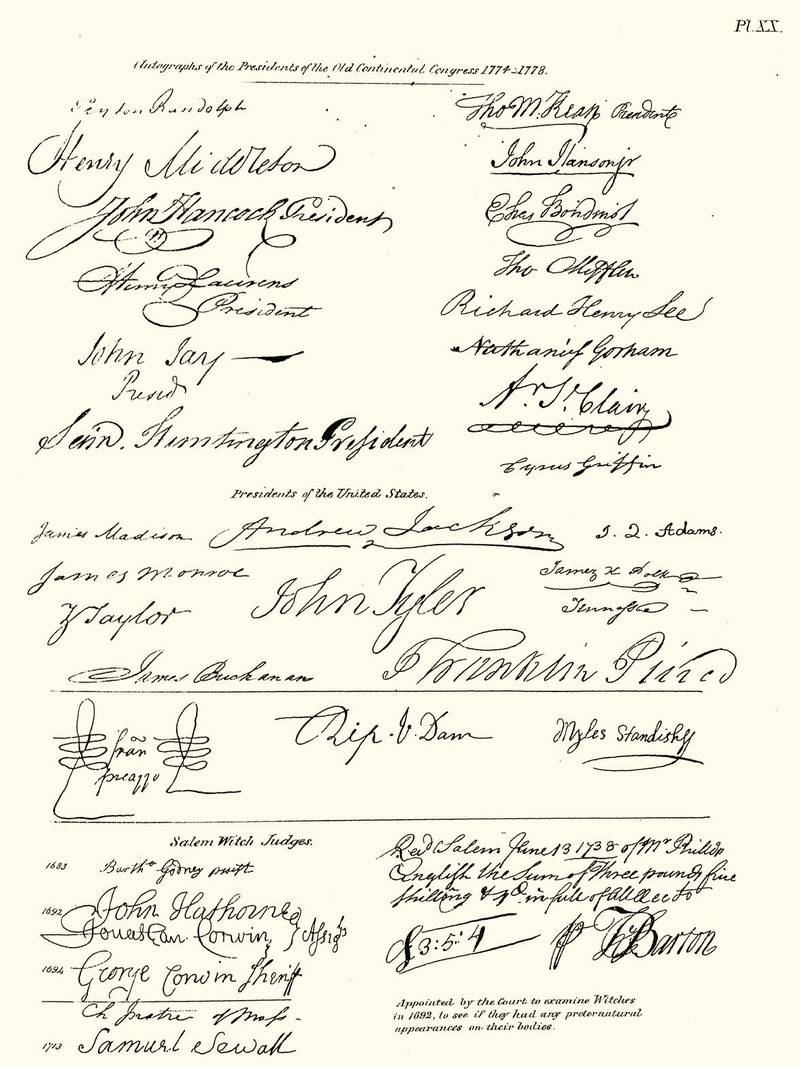 Pl. XX.
Autographs of the Presidents of the Old Continental Congress 1774-1778.
Peyton Randolph
Henry Middleton
John Hancock President
Henry Laurens
President
John Jay
Presid
Sam. Huntington President
Tho M. Kean President
John Hanson jr
Elias Boudinot
Tho Mifflin
Richard Henry Lee
Nathaniel Gorham
Ar. St. Clair
Cyrus Griffin
Presidents of the United States.
James Madison
Andrew Jackson
J. Q. Adams.
James Monroe
John Tyler
James K Polk
Tennessee
Z Taylor
James Buchanan
Franklin Pierce
fran
Rip. V. Dam
Myles Standish
Salem Witch Judges.
1683 Bartho Gedney
1692 John Hathorne
Jonathan Corwin, } Assists
1694 George Corwin Sheriff
Ch Justice of Mass-
1713 Samuel Sewall
Recd Salem June 13 1738 of Mr Phillip
English the Sum of Three pounds five
shilling & 4d. in full of all
£3:5:4
Barton
Appointed by the Court to examine Witches
in 1692, to see if they had any preternatural
appearances on their bodies.